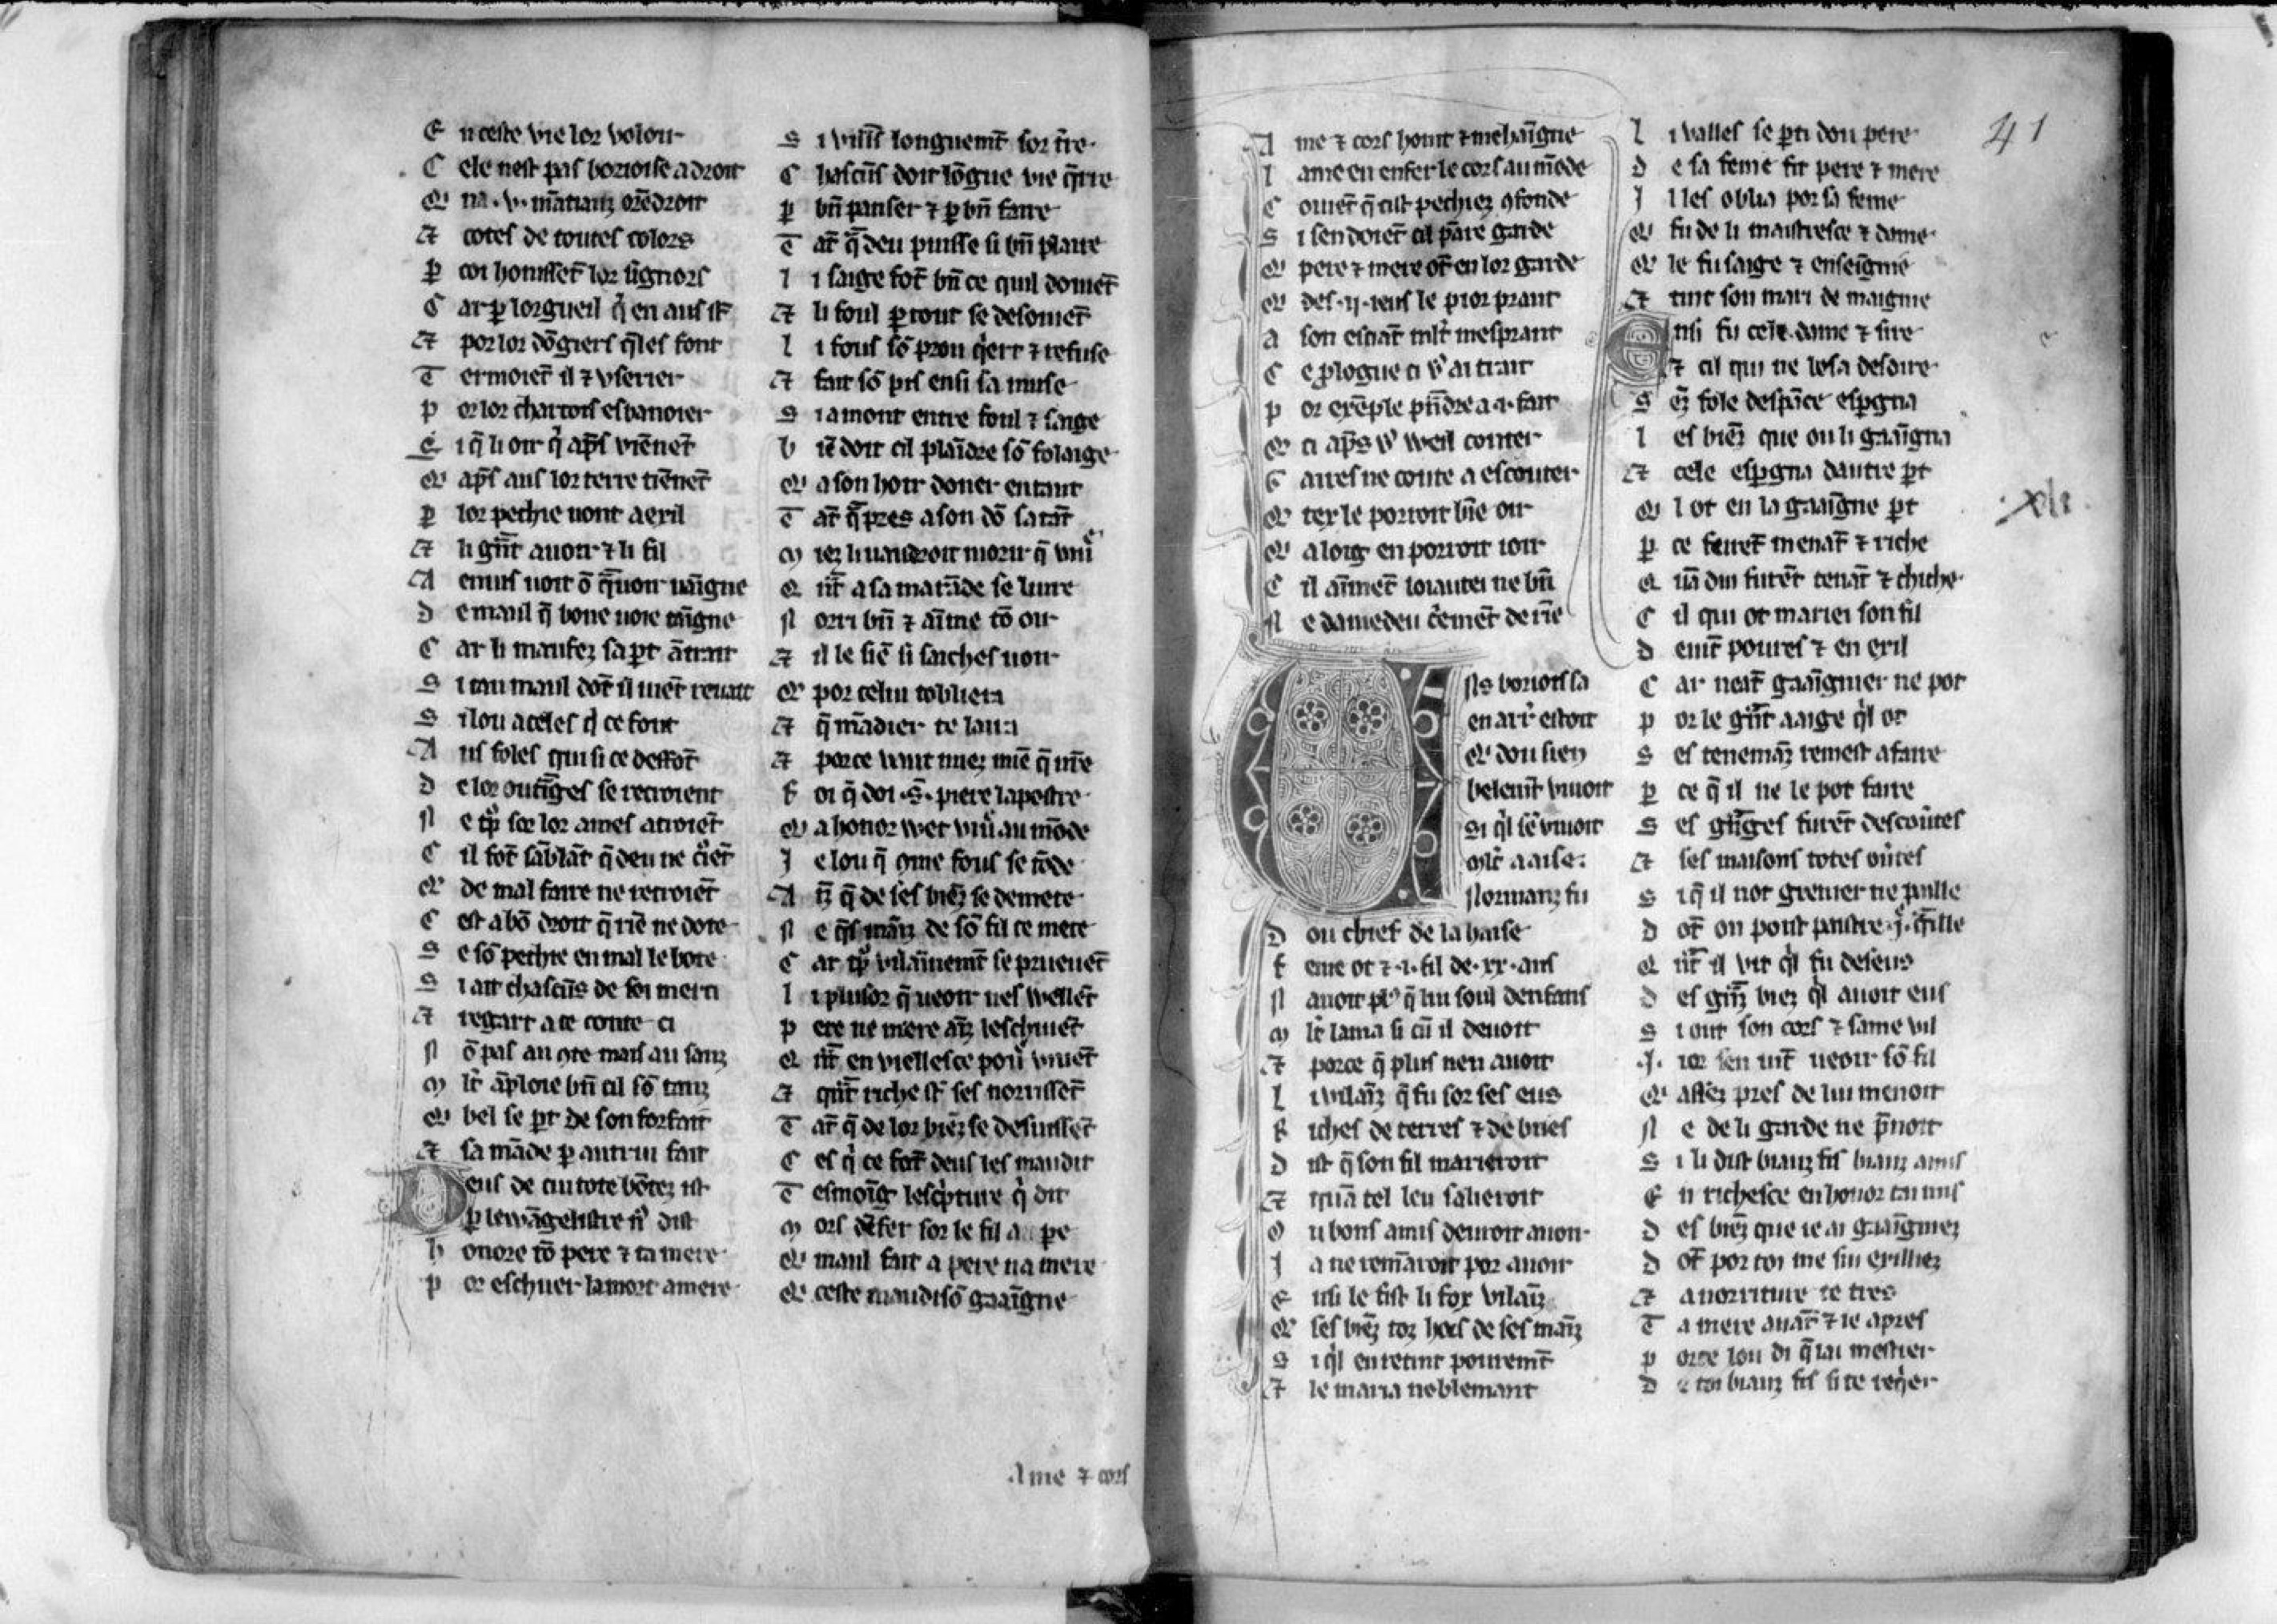 E n ceste vie lor voloir
C ele nest pas borioise a droit
Q͛ na .v. mātiauz orēdroit
Et cotes de toutes colors
P͛ coi honisset̄ lor signors
C ar ꝑ lorgueil q̇ en aus est
Et por lor dōgiers q̄les font
T ermoiet̄ il ⁊ vserier
P or lor charrois esbanoier
C i q̄ li oir q̇ ap̄s viēnet̄
Q͛ ap̄s aus lor terre tiēnet̄
P͛ lor pechie uont a exil
Et li gn̄t auoir ⁊ li fil
A enuis uoit ō q̄uoir uaīgne
D e maul q̄ bone uoie taīgne
C ar li maufez sa ꝑt ātrait
S i tau maul dot̄ il uiet̄ reuait
S i lou a celes q̇ ce font
A us foles qui si ce deffot̄
D e lor outrages se recroient
N e tp̄ sor lor ames acroiet̄
C il sot̄ sāblāt q̄ deu ne criet̄
Q͛ de mal faire ne recroiet̄
C est a bō droit q̄ riē ne dote
S e sō pechie en mal le bote
S i ait chascūs de soi merci
Et regart a ce conte ci
N ō pas au ꝯte mais au sanz
M lt̄ āploie bn̄ cil sō tanz
Q͛ bel se ꝑt de son forfait
Et sa māde ꝑ autrui fait
D eus de cui tote bōtez ist
P͛ lewāgelistre n̄ dist
H onore tō pere ⁊ ta mere
P or eschuer la mort amere
S i viuras longuemt̄ sor t̄re
C hascūs doit lōgue vie q̄rre
P͛ bn̄ panser ⁊ ꝑ bn̄ faire
T at̄ q̄ deu puisse si bn̄ plaire
L i saige fot̄ bn̄ ce quil doiuet̄
Et li foul ꝑ tout se desoiuet̄
L i fous sō prou q̇ert ⁊ refuse
Et fait sō pis ensi sa muse
S i a mont entre foul ⁊ saige
B iē doit cil plaīdre sō folaige
Q͛ a son hoir doner entant
T at̄ q̄ pres a son dō satat̄
M iez li uandroit morir q̄ viure
Q nt̄ a sa marāde se liure
N orri bn̄ ⁊ aīme tō oir
Et il le siē si saches uoir
Q͛ por celui tobliera
Et q̄ mādier te laira
Et por ce wuit muez miē q̄ nr̄e
F oi q̄ doi .S. piere lapostre
Q͛ a honor wet viure au mōde
J e lou q̄ ꝯme fous se tōde
A īz q̄ de ses biēz se demete
N e q̄ls māiz de sō fil ce mete
C ar tp̄ vilaīnemt̄ se prueuet̄
L i plusor q̄ ueoir nes wellet̄
P ere ne mere aīz leschiuet̄
Q nt̄ en viellesce poure viuet̄
Et qn̄t riche st̄ ses norrisset̄
T at̄ q̄ de lor biēz se desaisset̄
C es q̇ ce fot̄ deus les maudit
T esmoīg lescripture q̇ dit
M ors dēfer sor le fil a pe
Q͛ maul fait a pere na mere
Q͛ ceste maudisō gaaīgne
Ame ⁊ cors
41
A me ⁊ cors honit ⁊ mehaīgne
L ame en enfer le cors au mōde
C ouiet̄ q̄ cist pechiez ꝯfonde
S i sen doiet̄ cil panre garde
Q͛ pere ⁊ mere ot̄ en lor garde
Q͛ des .ij. ieus le pior prant
A son esciat̄ mlt̄ mesprant
C e ꝓlogue ci v̄ ai trait
P or exēple pn̄dre a .i. fait
Q͛ ci ap̄s v̄ weil conter
G aires ne conte a escouter
Q͛ tex le porroit bn̄e oir
Q͛ a loig en porroit ioir
C il aīmet̄ loiautei ne bn̄
N e damedeu criemet̄ de riē
Uns boriois ia
en arr̄ estoit
Q͛ dou sien
belemt̄ viuoit
Si q̇l sē viuoit
mlt̄ a aise.
Normanz fu
D ou chief de la haise
F eme ot ⁊ .i. fil de .xx. ans
N auoit pl᷒ q̄ lui soul denfans
M lt̄ lama si cū il deuoit
Et por ce q̄ plus nen auoit
L i vilaīz q̄ fu sor ses eus
R iches de terres ⁊ de bues
D ist q̄ son fil marieroit
Et quā tel leu salieroit
O u bons amis deuroit auoir
J a ne remāroit por auoir
E nsi le fist li fox vilaīz
Q͛ ses biēz toz hors de ses maīz
S i q̇l en retint pouremt̄
Et le maria noblemant
L i valles se ꝑti dou pere
D e sa feme fit pere ⁊ mere
J l les oblia por sa feme
Q͛ fu de li maistresce ⁊ dame
Q͛ le fu saige ⁊ enseigmé
Et tint son mari de maignie
Ensi fu cele dame ⁊ sire
Et cil qui ne losa desdire
S ēz fole despāce esꝑgna
L es biēz que ou li gaaīgna
Et cele esꝑgna dautre ꝑt
Q͛ l ot en la gaaīgne ꝑt
P͛ ce furet̄ menat̄ ⁊ riche
Q uādui furēt tenāt ⁊ chiche
C il qui ot mariei son fil
D euīt poures ⁊ en exil
C ar neat̄ gaaīgnier ne pot
P or le gn̄t aaige q̇l ot
S es tenemāz remest a faire
P͛ ce q̄ il ne le pot faire
S es grāges furet̄ descoūtes
Et ses maisons totes oūtes
S i q̄ il not grenier ne paille
D ot̄ on poist paistre .j. q̄ille
Q nt̄ il vit q̇l fu deseus
D es grāz biez q̇l auoit eus
S i out son cors ⁊ same vil
.J. ior sen vit̄ ueoir sō fil
Q͛ assez pres de lui menoit
N e de li garde ne p̄noit
S i li dist biauz fis biauz amis
E n richesce en honor tai mis
D es biēz que ie ai gaaīgniez
D ot̄ por toi me sui exilliez
Et a norriture te tres
T a mere auāt ⁊ ie apres
P or ce lou di q̄ iai mestier
D e toi biauz fis si te req̇er
xli